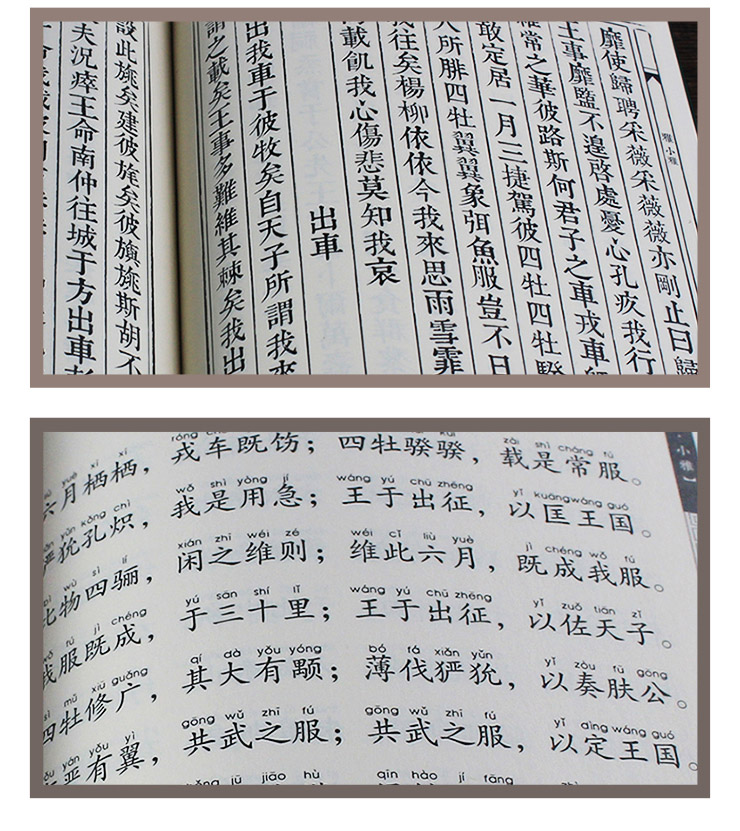 小雅
靡使歸聘采薇采薇薇亦剛止曰歸
王事靡盬不遑啓處憂心孔疚我行
維常之華彼路斯何君子之車戎車
敢定居一月三捷駕彼四牡四牡騤
人所腓四牡翼翼象弭魚服豈不日
我往矣楊柳依依今我來思雨雪霏
載飢我心傷悲莫知我哀
出車
出我車于彼牧矣自天子所謂我來
謂之載矣王事多難維其棘矣我出
設此旐矣建彼旄矣彼旟旐斯胡不
夫況瘁王命南仲往城于方出車
小雅】
yuè xī xī róng kuí zài shì cháng fú
六月栖栖，戎车既饬；四牡骙骙，载是常服。
yǔn kǒng chì wǒ shì yòng jí wáng yú chū zhēng yǐ kuāng wáng guó
狁孔炽，我是用急；王于出征，以匡王国。
wù sì lí xián zhī wéi zé wéi cǐ liù yuè jì chéng wǒ fú
比物四骊，闲之维则；维此六月，既成我服。
fú jì chéng yú sān shí lǐ wáng yú chū zhēng yǐ zuǒ tiān zǐ
我服既成，于三十里；王于出征，以佐天子。
sì mǔ xiū guǎng qí dà yǒu yóng bó fá xiǎn yǔn yǐ zòu fū gōng
四牡修广，其大有颙；薄伐猃狁，以奏肤公。
yán yǒu yì gòng wǔ zhī fú gòng wǔ zhī fú yǐ dìng wáng guó
严有翼，共武之服；共武之服，以定王国。
jū jiāo hù qīn hào jí fāng